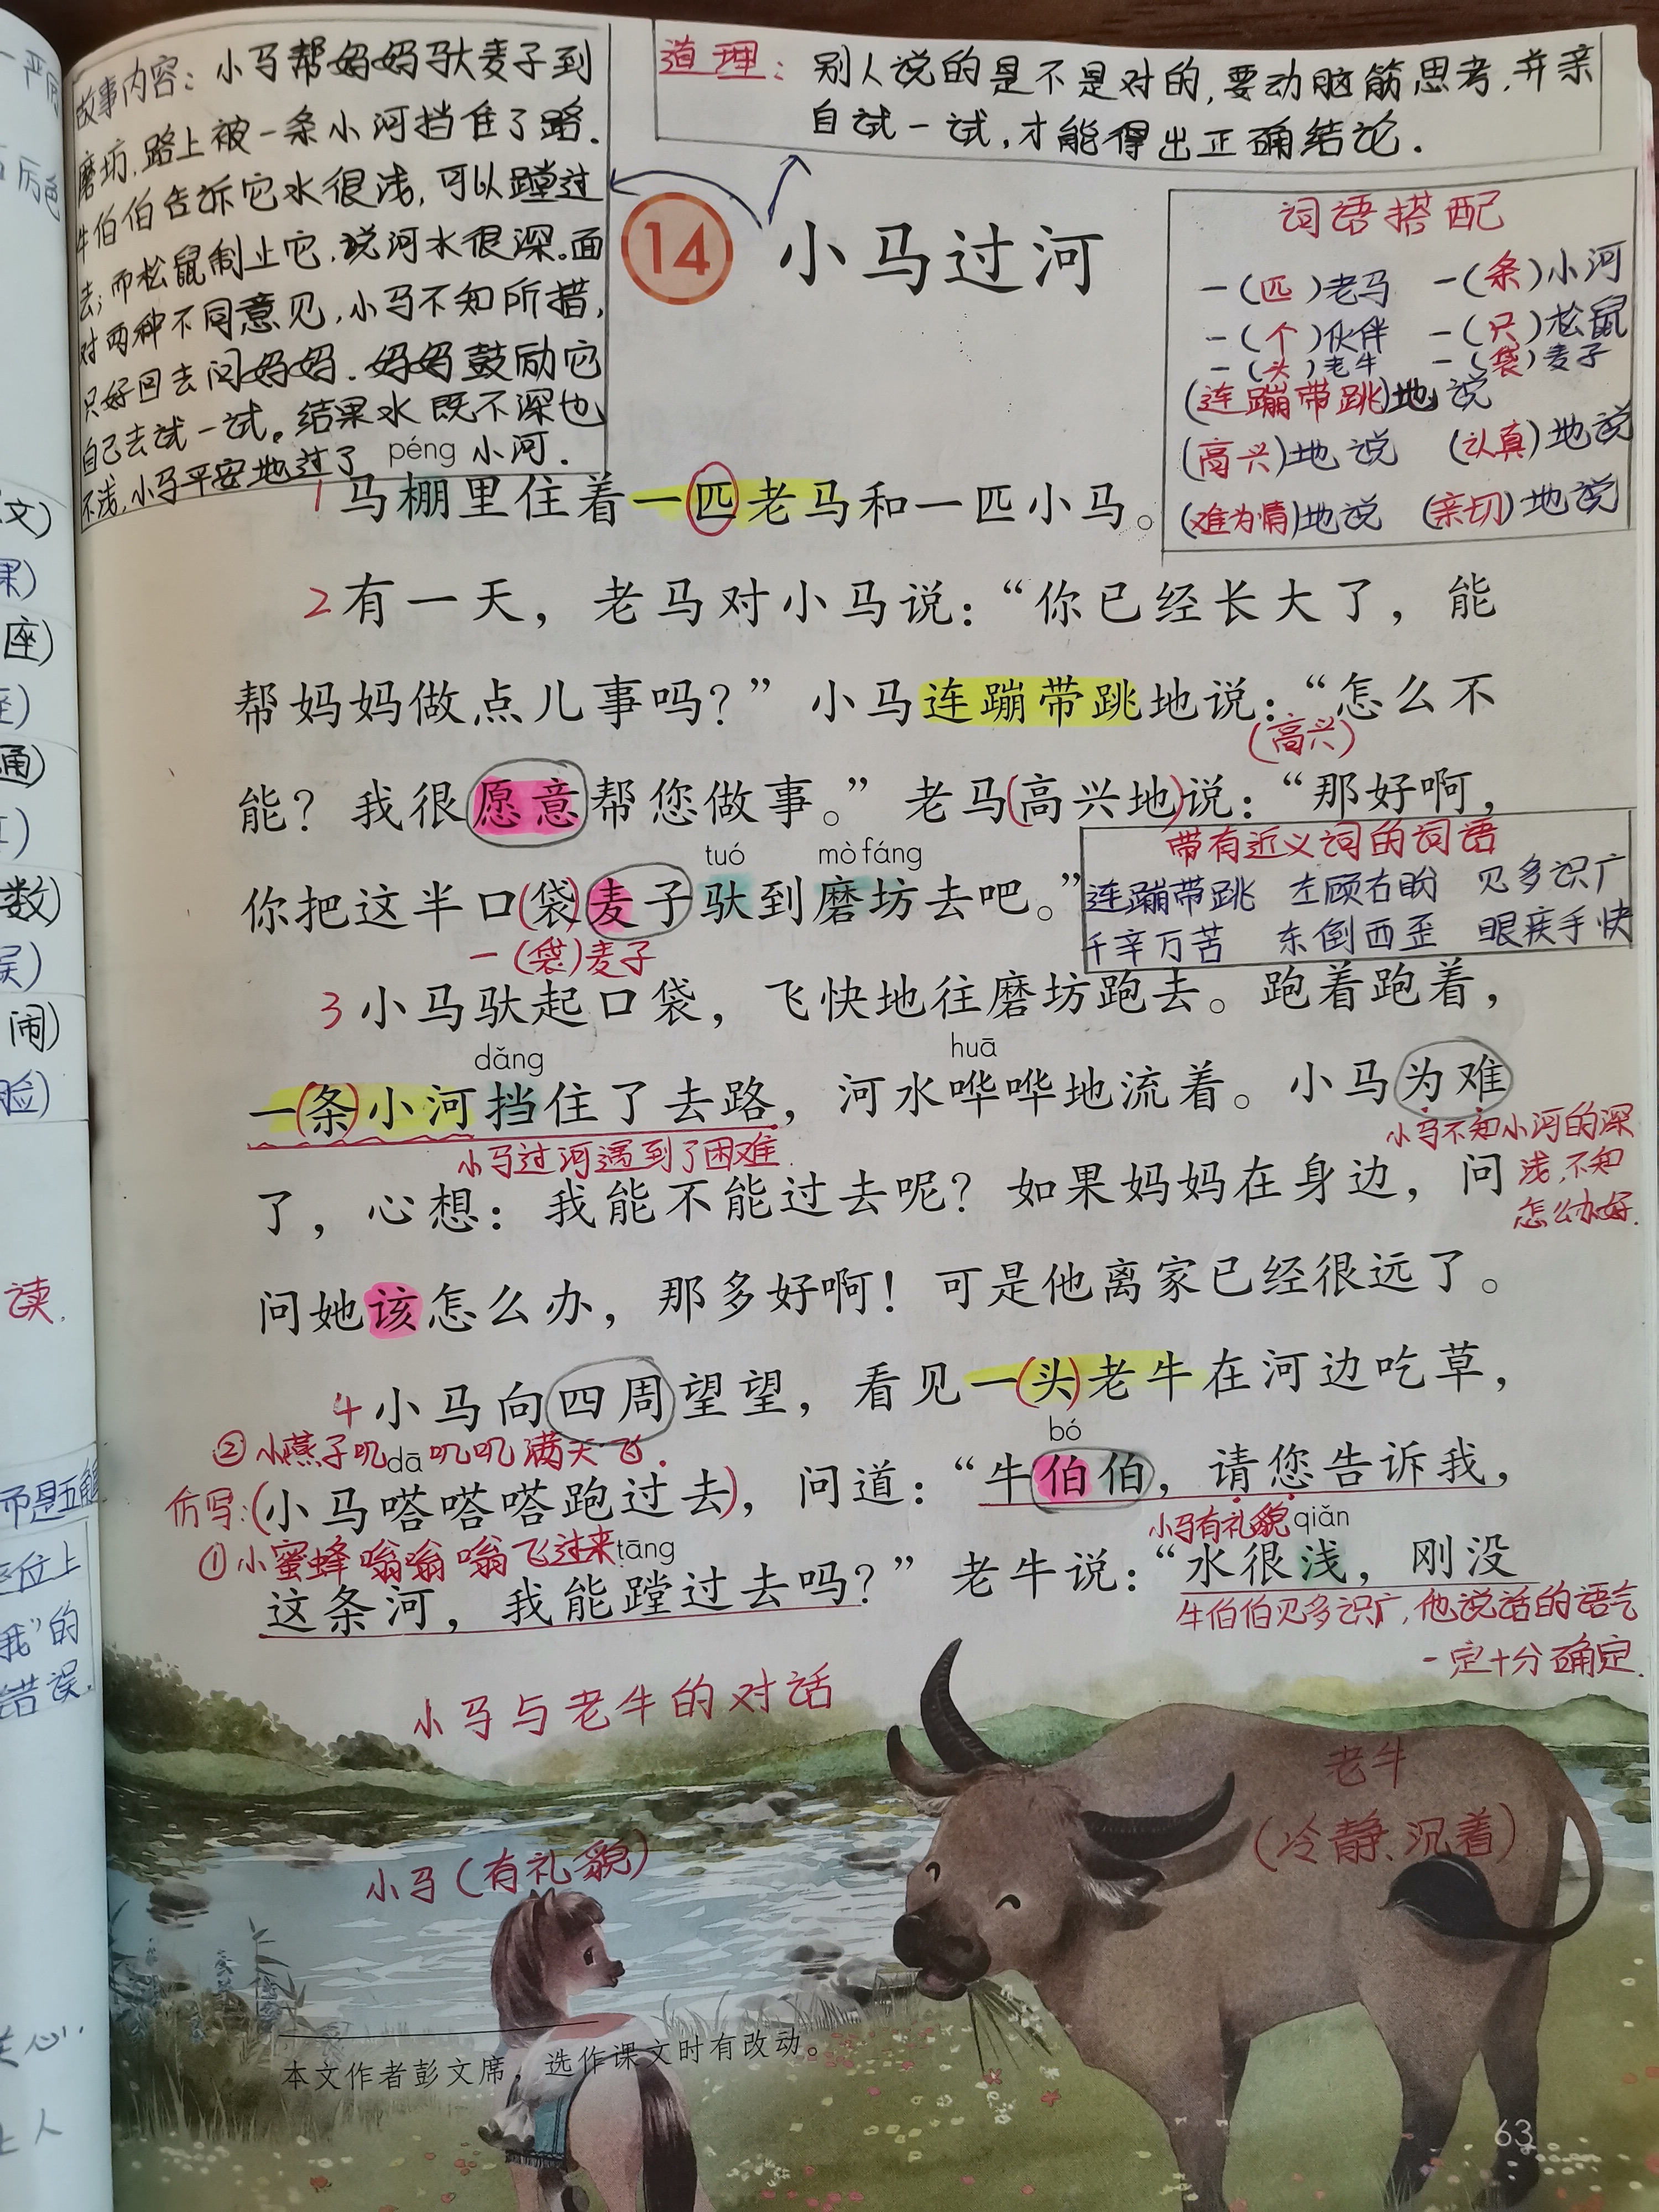 故事内容：小马帮妈妈驮麦子到
磨坊，路上被一条小河挡住了路．
牛伯伯告诉它水很浅，可以蹚过
去；而松鼠制止它，说河水很深。面
对两种不同意见，小马不知所措，
只好回去问妈妈．妈妈鼓励它
自己去试一试。结果水既不深也
不浅，小马平安地过了小河．
道理：别人说的是不是对的，要动脑筋思考，并亲
自试一试，才能得出正确结论．
14 小马过河
词语搭配
一（匹）老马 一（条）小河
一（个）伙伴 一（只）松鼠
一（头）老牛 一（袋）麦子
（连蹦带跳）地说
（高兴）地说 （认真）地说
（难为情）地说 （亲切）地说
péng
1 马棚里住着一匹老马和一匹小马。
2 有一天，老马对小马说：“你已经长大了，能
帮妈妈做点儿事吗？”小马连蹦带跳地说：“怎么不
（高兴）
能？我很愿意帮您做事。”老马（高兴地）说：“那好啊，
tuó mò fáng
你把这半口（袋）麦子驮到磨坊去吧。”
一（袋）麦子
带有近义词的词语
连蹦带跳 左顾右盼 见多识广
千辛万苦 东倒西歪 眼疾手快
3 小马驮起口袋，飞快地往磨坊跑去。跑着跑着，
dǎng huā
一（条）小河挡住了去路，河水哗哗地流着。小马为难
小马过河遇到了困难．
小马不知小河的深
浅，不知
怎么办好．
了，心想：我能不能过去呢？如果妈妈在身边，问
问她该怎么办，那多好啊！可是他离家已经很远了。
4 小马向四周望望，看见一（头）老牛在河边吃草，
②小燕子叽叽叽满天飞．
dā bó
仿写：（小马嗒嗒嗒跑过去），问道：“牛伯伯，请您告诉我，
①小蜜蜂嗡嗡嗡飞过来
小马有礼貌
tāng qiǎn
这条河，我能蹚过去吗？”老牛说：“水很浅，刚没
牛伯伯见多识广，他说话的语气
一定十分确定．
小马与老牛的对话
老牛
（冷静、沉着）
小马（有礼貌）
本文作者彭文席，选作课文时有改动。
63
文）
课）
座）
通）
数）
闹）
脸）
读．
而是五
位上
我”的
错误．
心．
上人